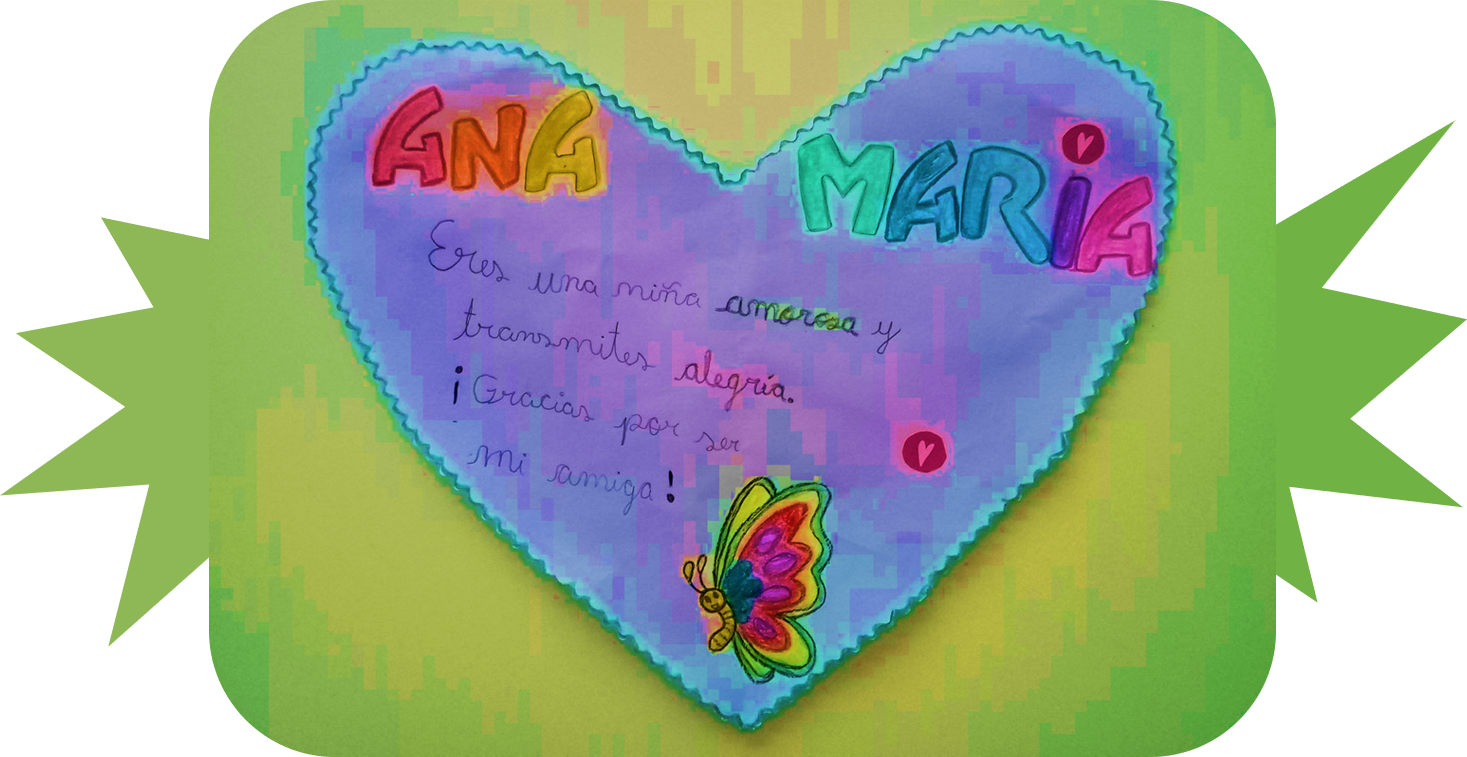 ANA
MARiA
Eres una niña amorosa y
transmites alegría.
¡Gracias por ser
mi amiga!